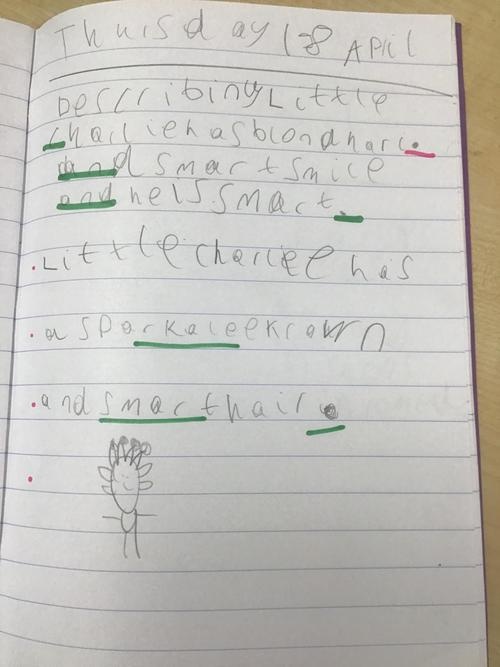 Thursday 18 April
Describing Little
charlie has blond hare.
and smart smile
and he is smart.
Little charlee has
a sparkalee krawn
and smart hair.